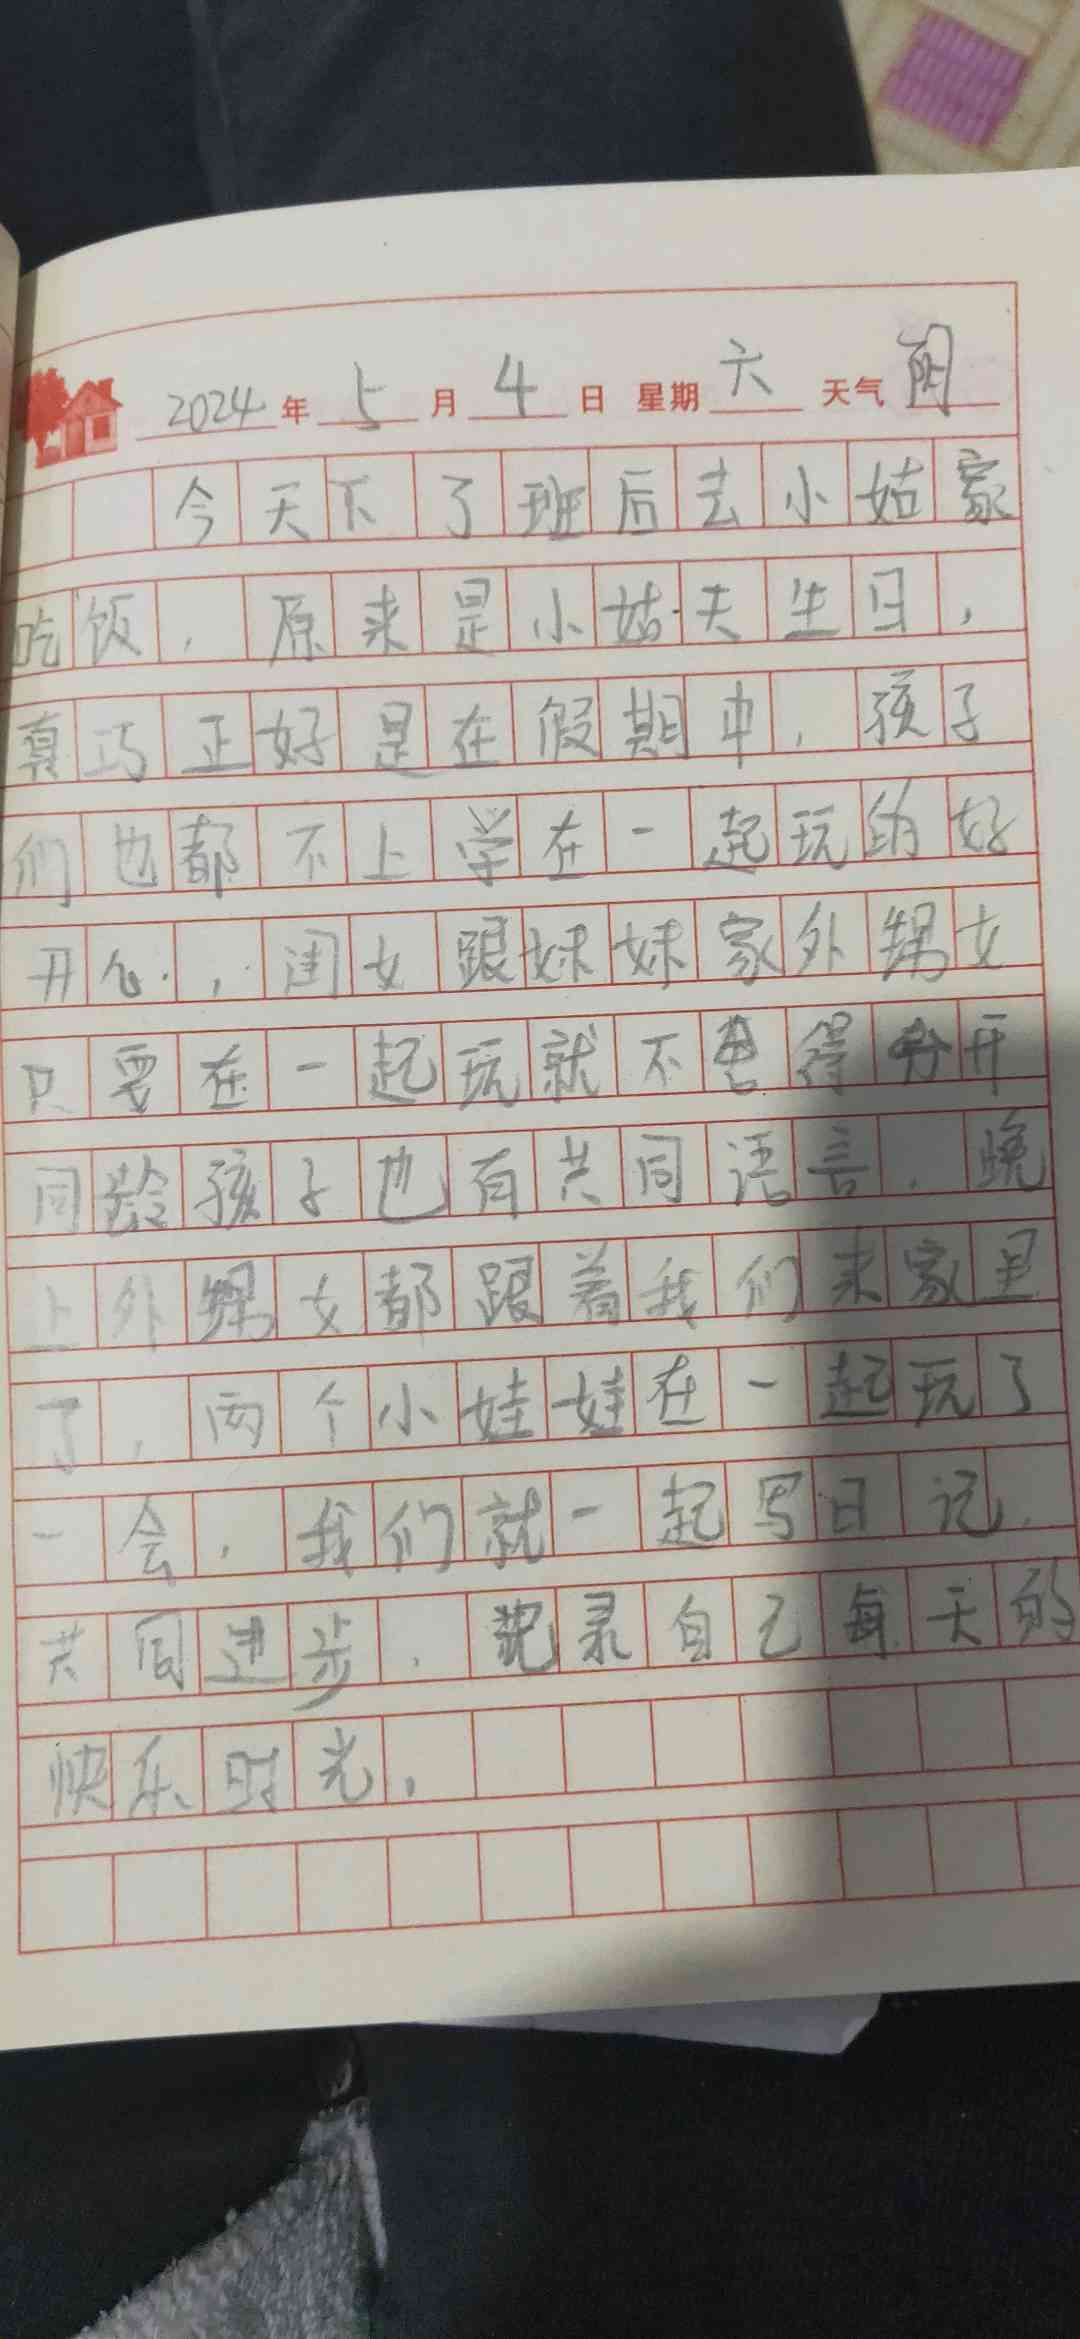 2024年5月4日 星期六 天气阴
今天下了班后去小姑家
吃饭,原来是小姑夫生日,
真巧正好是在假期中,孩子
们也都不上学在一起玩的好
开心,闺女跟妹妹家外甥女
只要在一起玩就不舍得分开
同龄孩子也有共同语言.晚
上外甥女都跟着我们来家里
了,两个小娃娃在一起玩了
一会,我们就一起写日记.
共同进步.记录自己每天的
快乐时光,